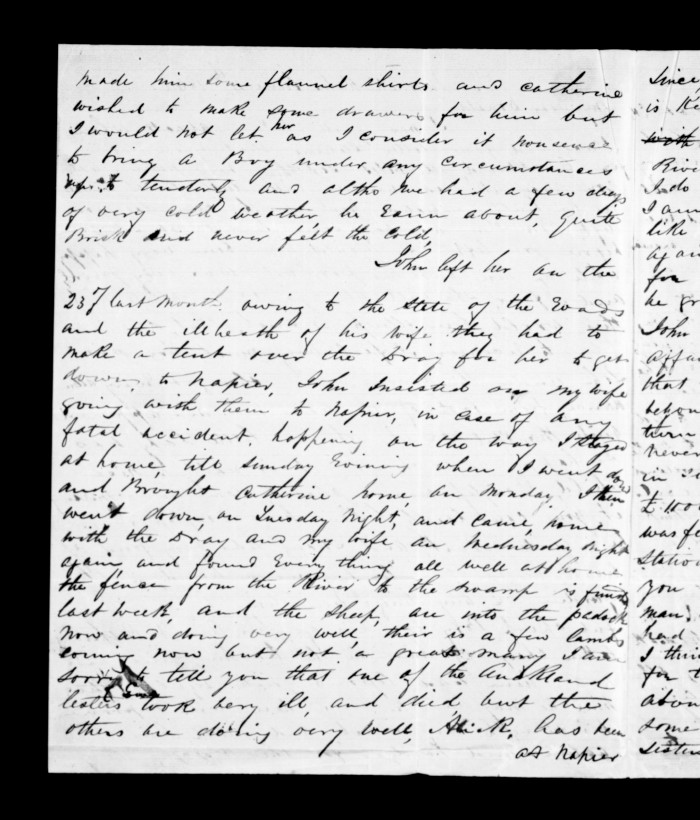 made him some flannel shirts and catherine
wished to make some drawers for him but
I would not let her as I consider it nonsense
to bring a Boy under any circumstances
up to tenderly and altho we had a few days
of very cold weather he Eann about, quite
Brisk and never felt the cold,
John left her on the
23rd last month owing to the state of the Eoads
and the illheath of his wife they had to
make a tent over the Dray for her to get
down, to Napier, John Insisted on my wife
going with them to Napier, in case of any
fatal accident, happening on the way I stayed
at home, till sunday Evening when I went
and Brought Catherine home, on Monday, I then
went down, on Tuesday Night, and came, home
with the Dray and my wife on Wednesday night
again, and found Every thing all well at home
the fence from the River to the swamp is
last week, and the sheep, are into the padock
now and doing very well, their is a few lambs
coming now but not a great many I am
sorry to tell you that one of the Auckland
took very ill, and died but the
others are doing very well, Alick, has been
at Napier
Since
is
with
I do
I am
like
for
John
that
them
never
in
was
you
man
had
I
for
some